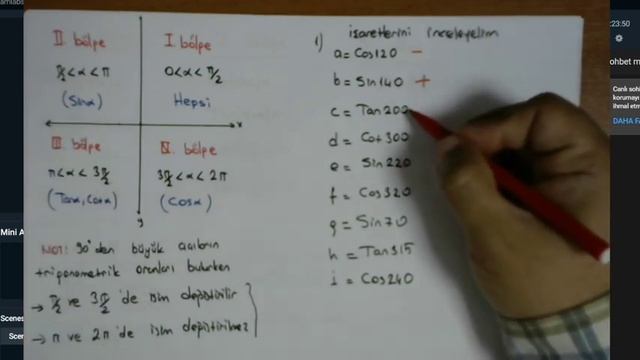 II. bölpe
π/2 < α < π
(Sinα)
I. bölpe
0 < α < π/2
Hepsi
x
III. bölpe
π < α < 3π/2
(Tanα, Cotα)
IV. bölpe
3π/2 < α < 2π
(Cosα)
y
NOT: 90° den büyük açıların
trigonometrik oranları bulurken
→ π/2 ve 3π/2 'de isim değiştirilir
→ π ve 2π 'de isim değiştirilmez
1) işaretlerini inceleyelim
a = Cos120 -
b = Sin140 +
c = Tan200
d = Cot300
e = Sin220
f = Cos320
g = Sin70
h = Tan315
i = Cos240
Mini A
Scenes
Scen
:23:50
ohbet m
Canlı sohl
korumayı
ihmal etm
DAHA FA